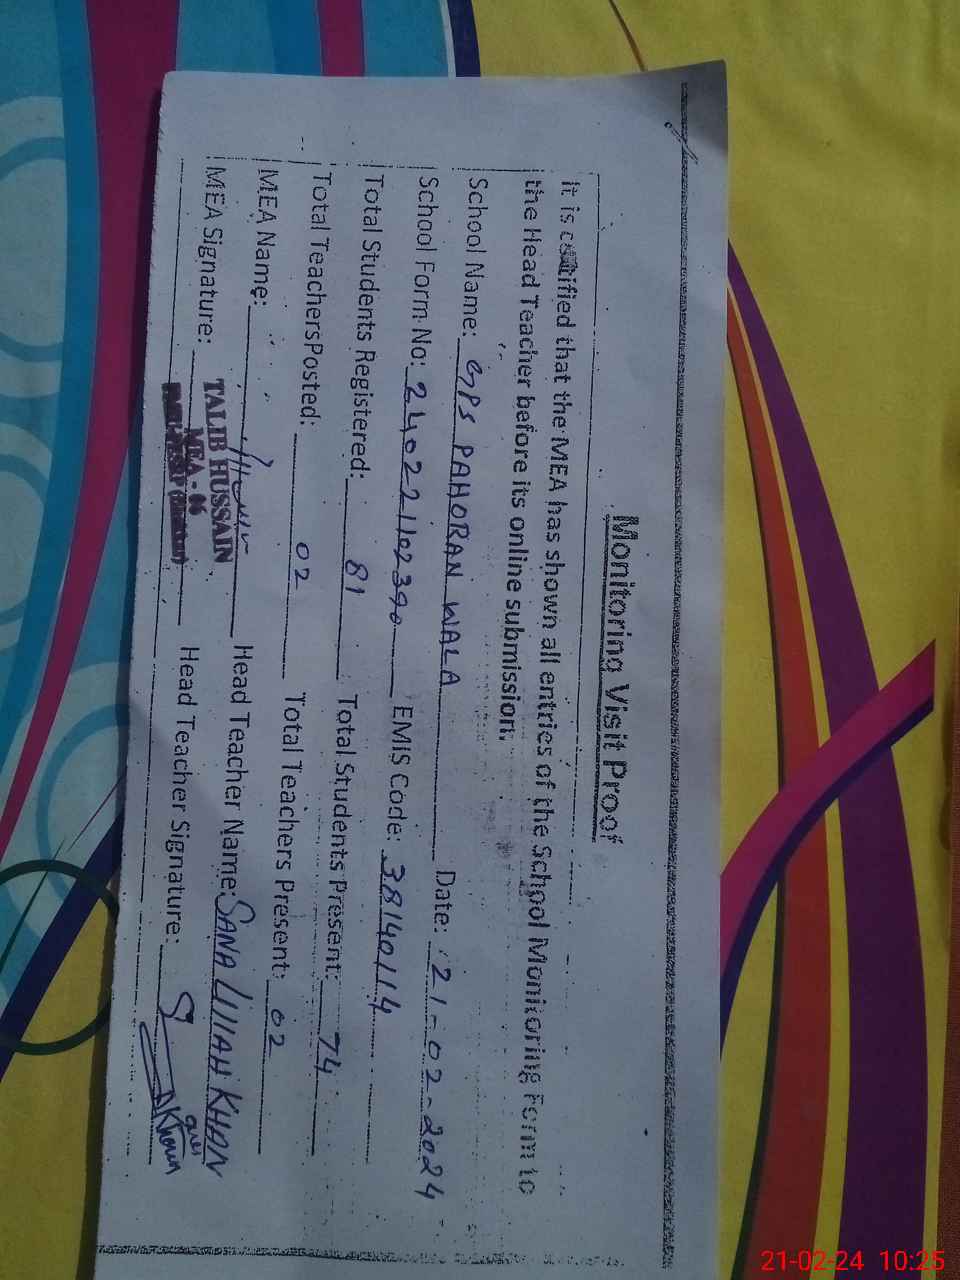 Monitoring Visit Proof
It is certified that the MEA has shown all entries of the School Monitoring Form to
the Head Teacher before its online submission.
School Name: GPS PAHORAN WALA Date: 21-02-2024
School Form No: 240221102390 EMIS Code: 38140114
Total Students Registered: 81 Total Students Present: 74
Total TeachersPosted: 02 Total Teachers Present: 02
MEA Name: Head Teacher Name: SANA ULLAH KHAN
TALIB HUSSAIN
MEA Signature: MEA - 06 Head Teacher Signature:
21-02-24 10:25